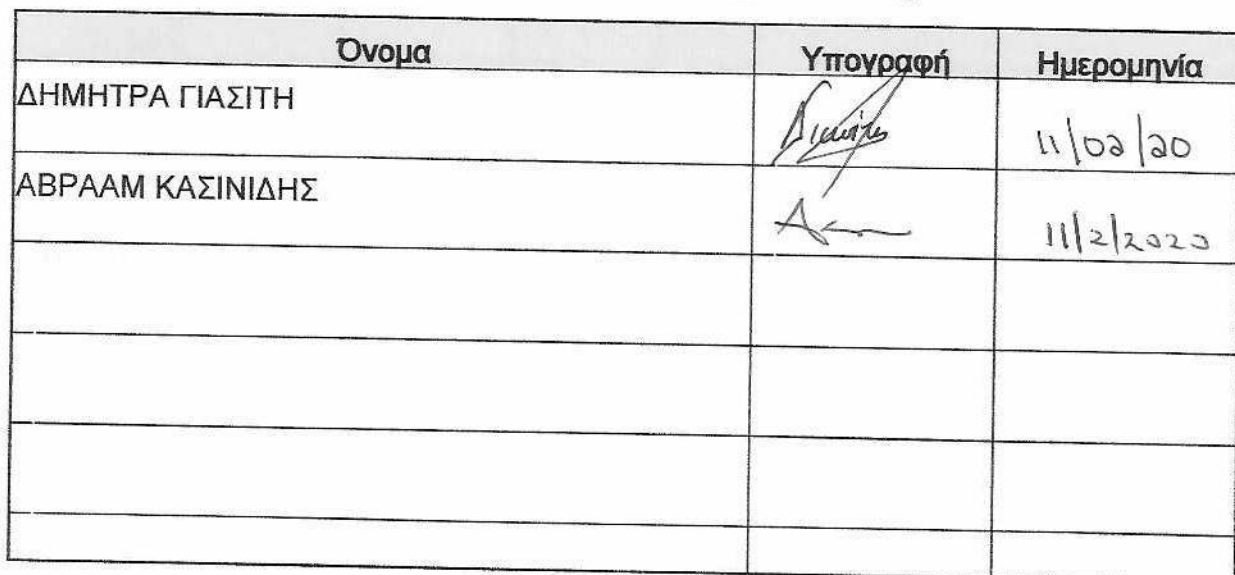 Όνομα Υπογραφή Ημερομηνία
ΔΗΜΗΤΡΑ ΓΙΑΣΙΤΗ 11/02/20
ΑΒΡΑΑΜ ΚΑΣΙΝΙΔΗΣ 11/2/2020